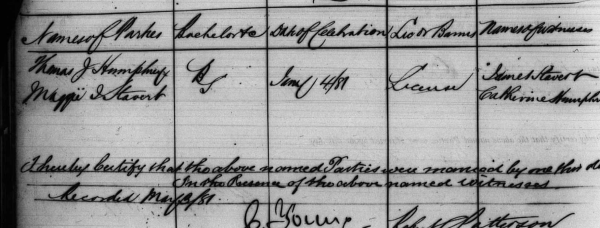 Names of Parties Bachelor &c Date of Celebration Lic or Banns Names of witnesses
Thomas J Humphrey B Jany 4/81 License James Stavert
Maggie I Stavert S Catherine Humphr
I hereby Certify that the above named Parties were married by me this d
In the Presence of the above named witnesses
Recorded /81
Young Patterson